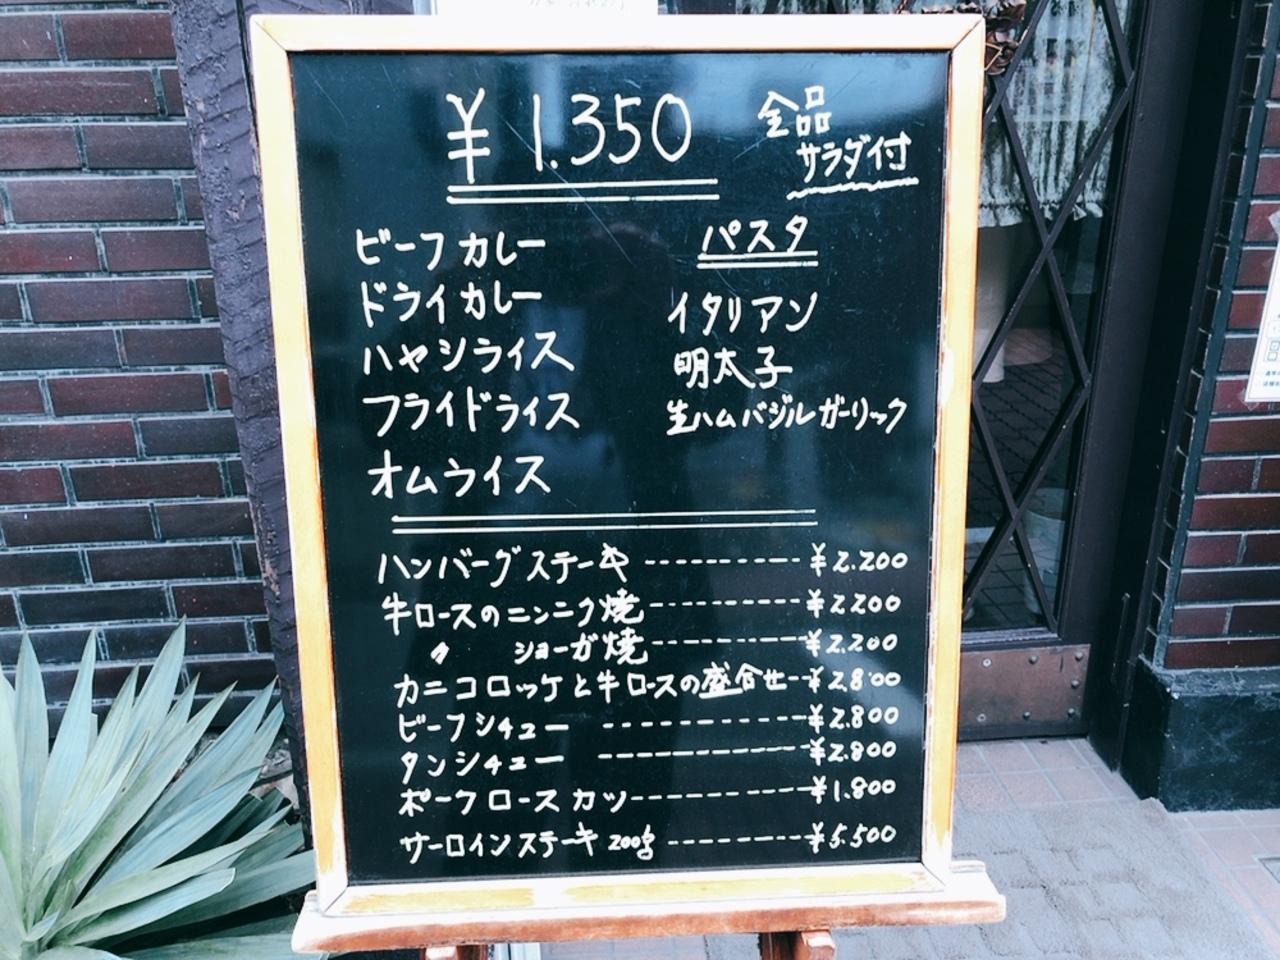 ¥1.350
全品
サラダ付
ビーフカレー
ドライカレー
ハヤシライス
フライドライス
オムライス
パスタ
イタリアン
明太子
生ハムバジルガーリック
ハンバーグステーキ ---------- ¥2.200
牛ロースのニンニク焼 ---------- ¥2200
〃 ショーガ焼 ---------- ¥2.200
カニコロッケと牛ロースの盛合せ -- ¥2.800
ビーフシチュー ---------- ¥2.800
タンシチュー ---------- ¥2.800
ポークロースカツ ---------- ¥1.800
サーロインステーキ 200g ---------- ¥5.500